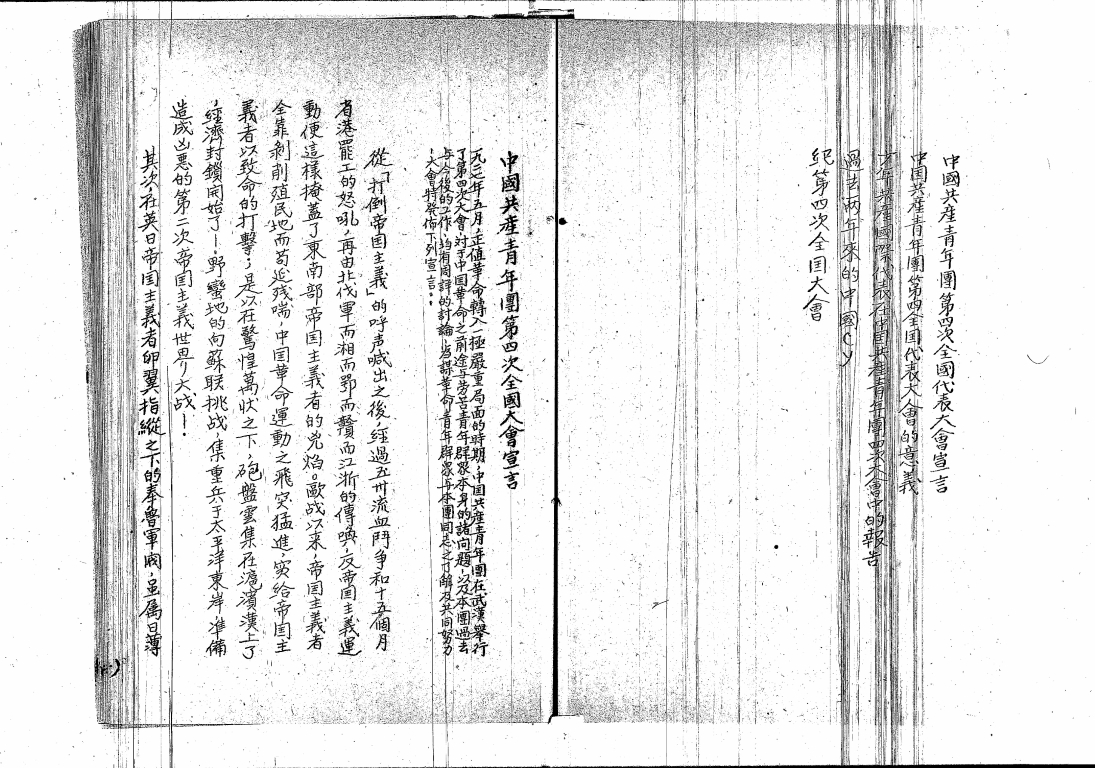 中國共產青年團第四次全國代表大會宣言
中国共產青年團第四全国代表大會的意義
共產國際代表在中国共產青年團四次大會中的報告
過去兩年來的中國CY
紀第四次全国大會
中國共產青年團第四次全國大會宣言
一九二七年五月,正值革命轉入一極嚴重局面的時期,中国共產青年團在武漢舉行
了第四次大會,对于中国革命之前途与劳苦青年群眾本身的諸问題,以及本團過去
与今後的工作,均有周詳的討論,为謀革命青年群眾与本團同志之了解及共同努力
,大會特發佈下列宣言:
從「打倒帝国主義」的呼声喊出之後,經過五卅流血鬥争和十五個月
省港罷工的怒吼,再由北伐軍而湘而鄂而贛而江浙的傳喚,反帝国主義運
動便這樣掩蓋了東南部帝国主義者的兇焰。歐战以来,帝国主義者
全靠剥削殖民地而苟延残喘,中国革命運動之飛突猛進,实給帝国主
義者以致命的打擊;是以在驚惶萬状之下,砲盤雲集在滬濱漢上了
,經濟封鎖開始了!野蠻地的向蘇联挑战,集重兵于太平洋東岸準備
造成凶悪的第二次帝国主義世界大战!
其次,在英日帝国主義者卵翼指縱之下的奉魯軍閥,虽属日薄